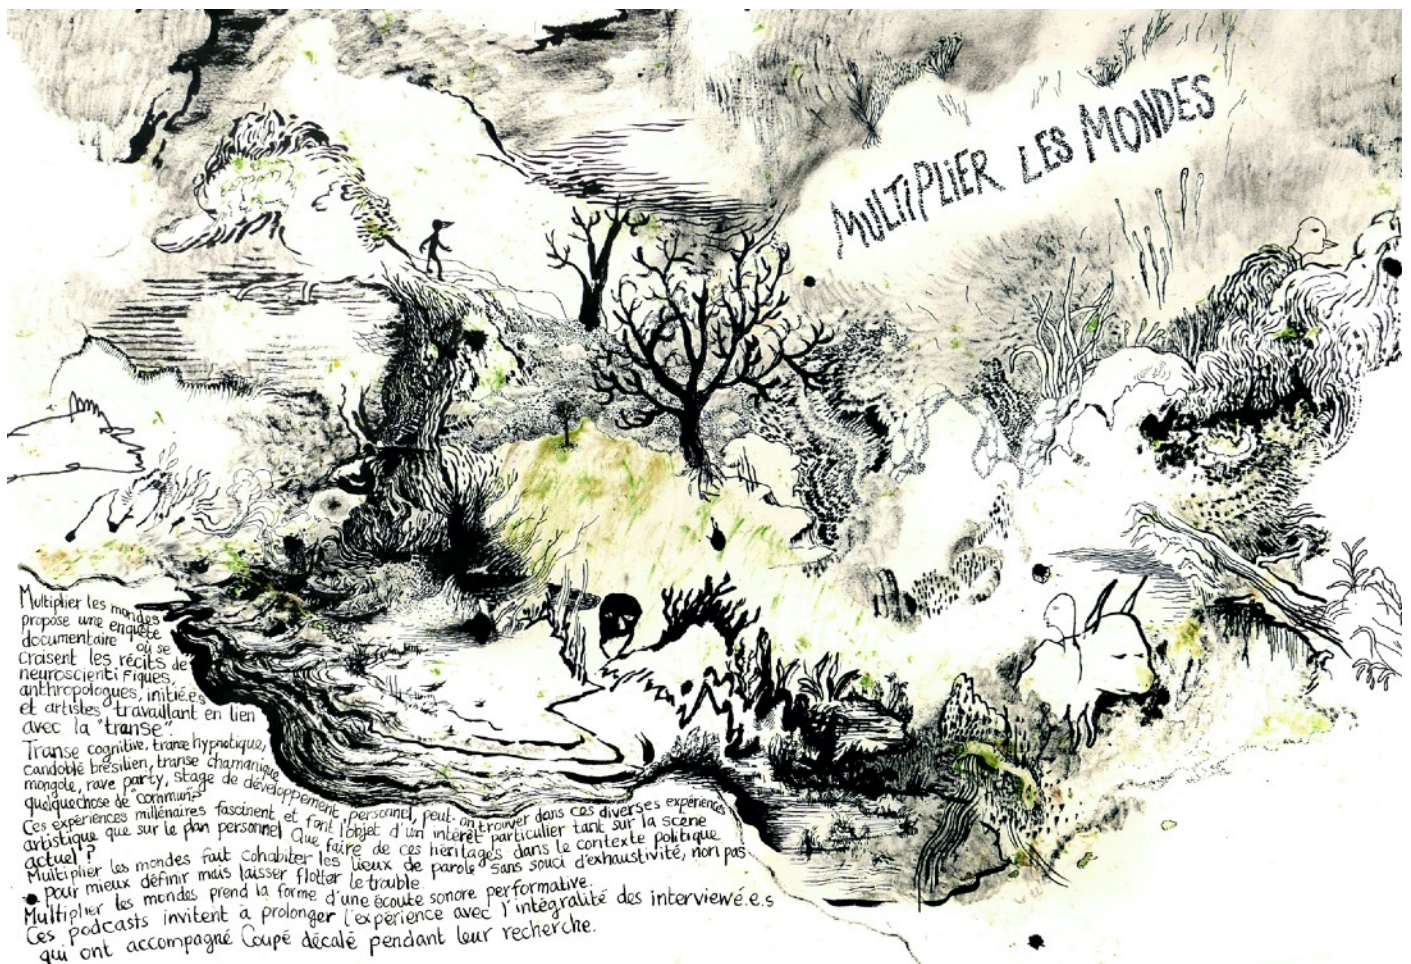 MULTIPLIER LES MONDES
Multiplier les mondes
propose une enquête
documentaire où se
croisent les récits de
neuroscientifiques,
anthropologues, initié.e.s
et artistes travaillant en lien
avec la "transe".
Transe cognitive, transe hypnotique,
candoblé brésilien, transe chamanique
mongole, rave party, stage de développement personnel, peut-on trouver dans ces diverses expériences
quelque chose de commun?
Ces expériences millénaires fascinent et font l'objet d'un intérêt particulier tant sur la scène
artistique que sur le plan personnel Que faire de ces héritages dans le contexte politique
actuel ?
Multiplier les mondes fait cohabiter les lieux de parole sans souci d'exhaustivité, non pas
pour mieux définir mais laisser flotter le trouble.
Multiplier les mondes prend la forme d'une écoute sonore performative.
Ces podcasts invitent à prolonger l'expérience avec l'intégralité des interviewé.e.s
qui ont accompagné Coupé décalé pendant leur recherche.